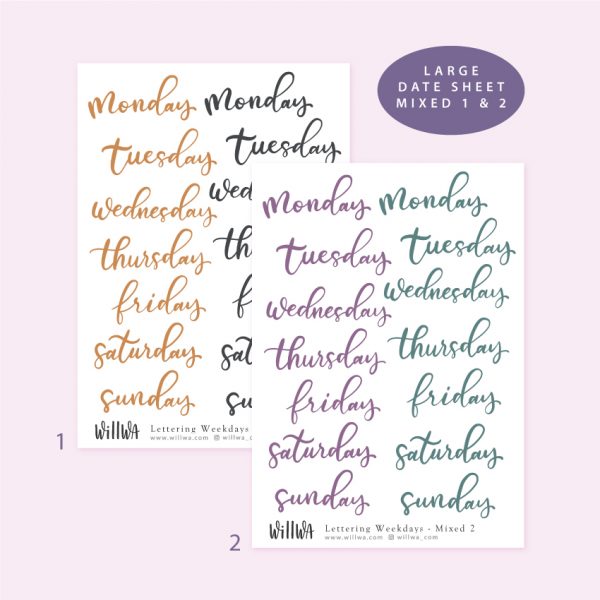 LARGE
DATE SHEET
MIXED 1 & 2
monday monday
tuesday tuesday
wednesday
thursday
friday
saturday
sunday
WillWA Lettering Weekdays -
www.willwa.com willwa_c
1
monday monday
tuesday tuesday
wednesday wednesday
thursday thursday
friday friday
saturday saturday
sunday sunday
WillWA Lettering Weekdays - Mixed 2
www.willwa.com willwa_com
2